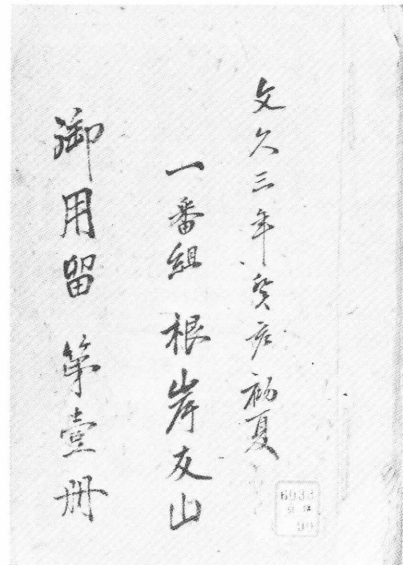 文久三年癸亥初夏
一番組 根岸友山
御用留 第壹冊
6933